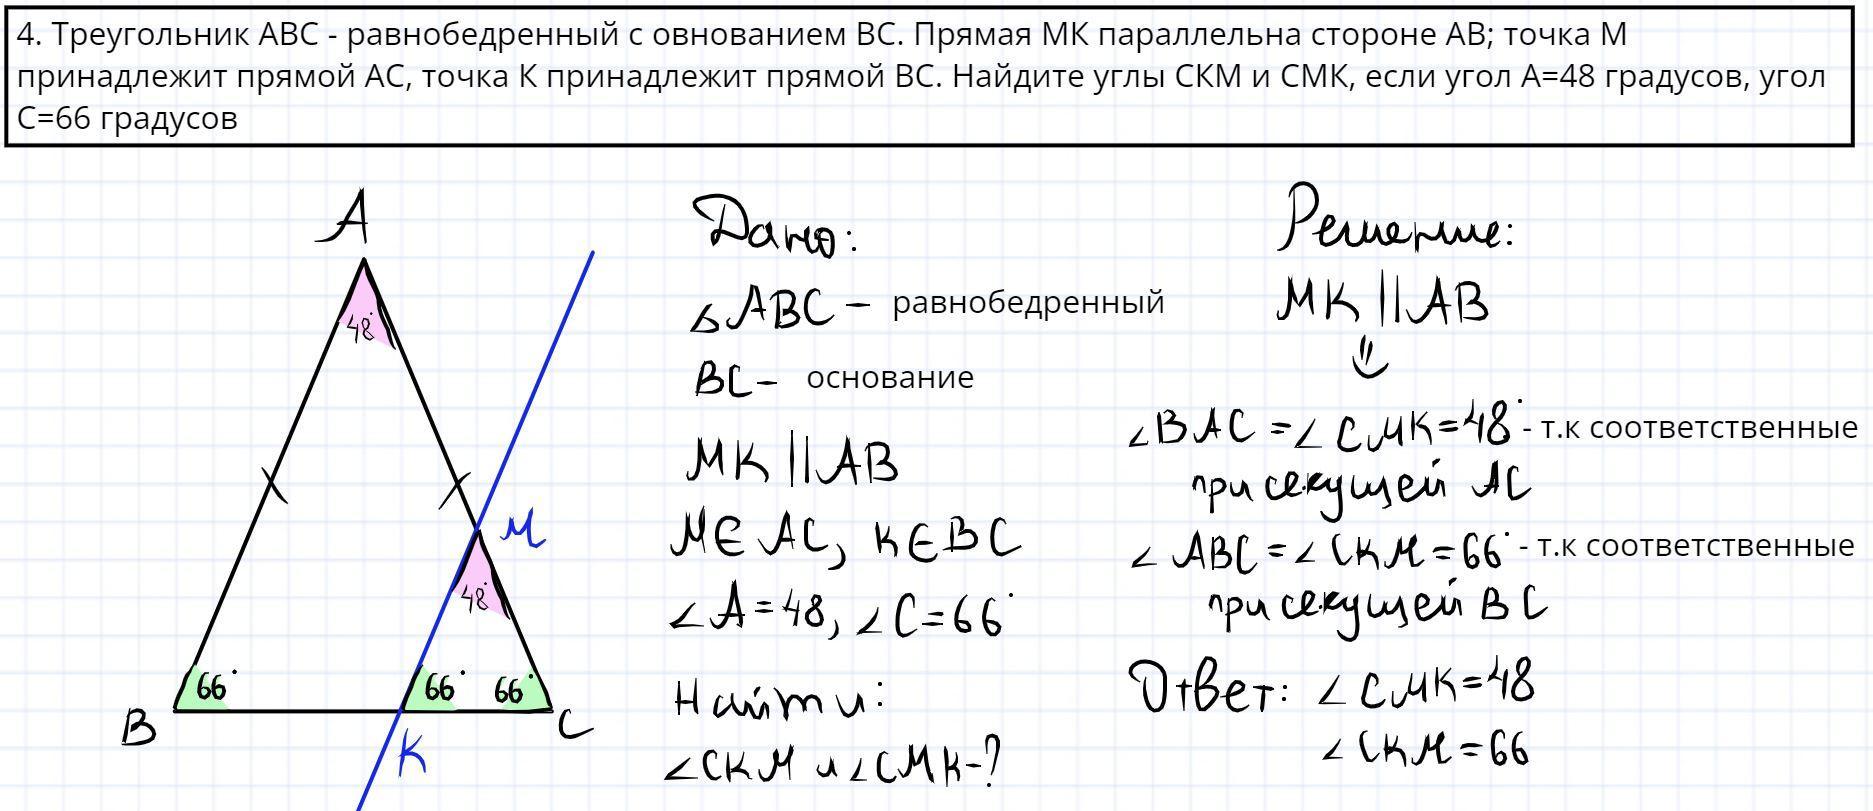 4. Треугольник АВС - равнобедренный с овнованием ВС. Прямая МК параллельна стороне АВ; точка М
принадлежит прямой АС, точка К принадлежит прямой ВС. Найдите углы СКМ и СМК, если угол А=48 градусов, угол
С=66 градусов
A
48°
M
48°
66°
66°
66°
B
K
C
Дано:
△ABC – равнобедренный
BC – основание
MK || AB
M∈AC, K∈BC
∠A=48, ∠C=66°
Найти:
∠CKM и ∠CMK-?
Решение:
MK || AB
∠BAC = ∠CMK=48° - т.к соответственные
при секущей AC
∠ABC = ∠CKM = 66° - т.к соответственные
при секущей BC
Ответ: ∠CMK=48
∠CKM=66